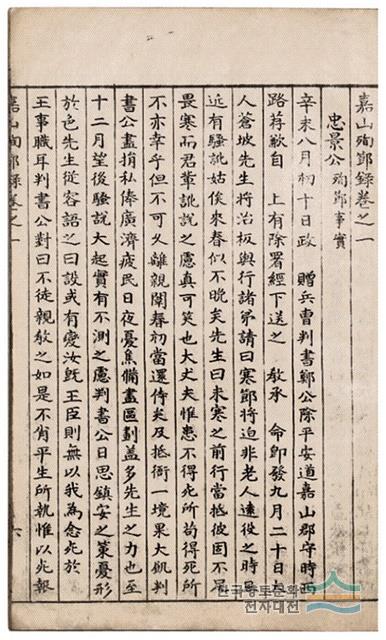 嘉山殉節錄卷之一
忠景公 殉節事實
辛未八月初十日政 贈兵曹判書鄭公除平安道嘉山郡守時西
路荐歉自 上有除署經下送之 敎承 命卽發九月二十日大
人蒼坡先生將治板輿行諸弟請曰寒節將迫非老人遠役之時且
近有騷訛姑俟來春似不晩矣先生曰未寒之前行當抵彼固不足
畏寒而君輩訛說之慮眞可笑也大丈夫惟患不得死所苟得死所
不亦幸乎但不可久離親闈春初當還侍矣及抵衙一境果大飢判
書公盡捐私俸廣濟疲民日夜憂焦備盡區劃盖多先生之力也至
十二月望後騷說大起實有不測之慮判書公日思鎭安之策憂形
於色先生從容語之曰設或有變汝旣王臣則無以我爲念死於
王事職耳判書公對曰不徒親敎之如是不肖平生所執惟以死報
嘉山殉節錄卷之一
六
한국향토문화
전자대전